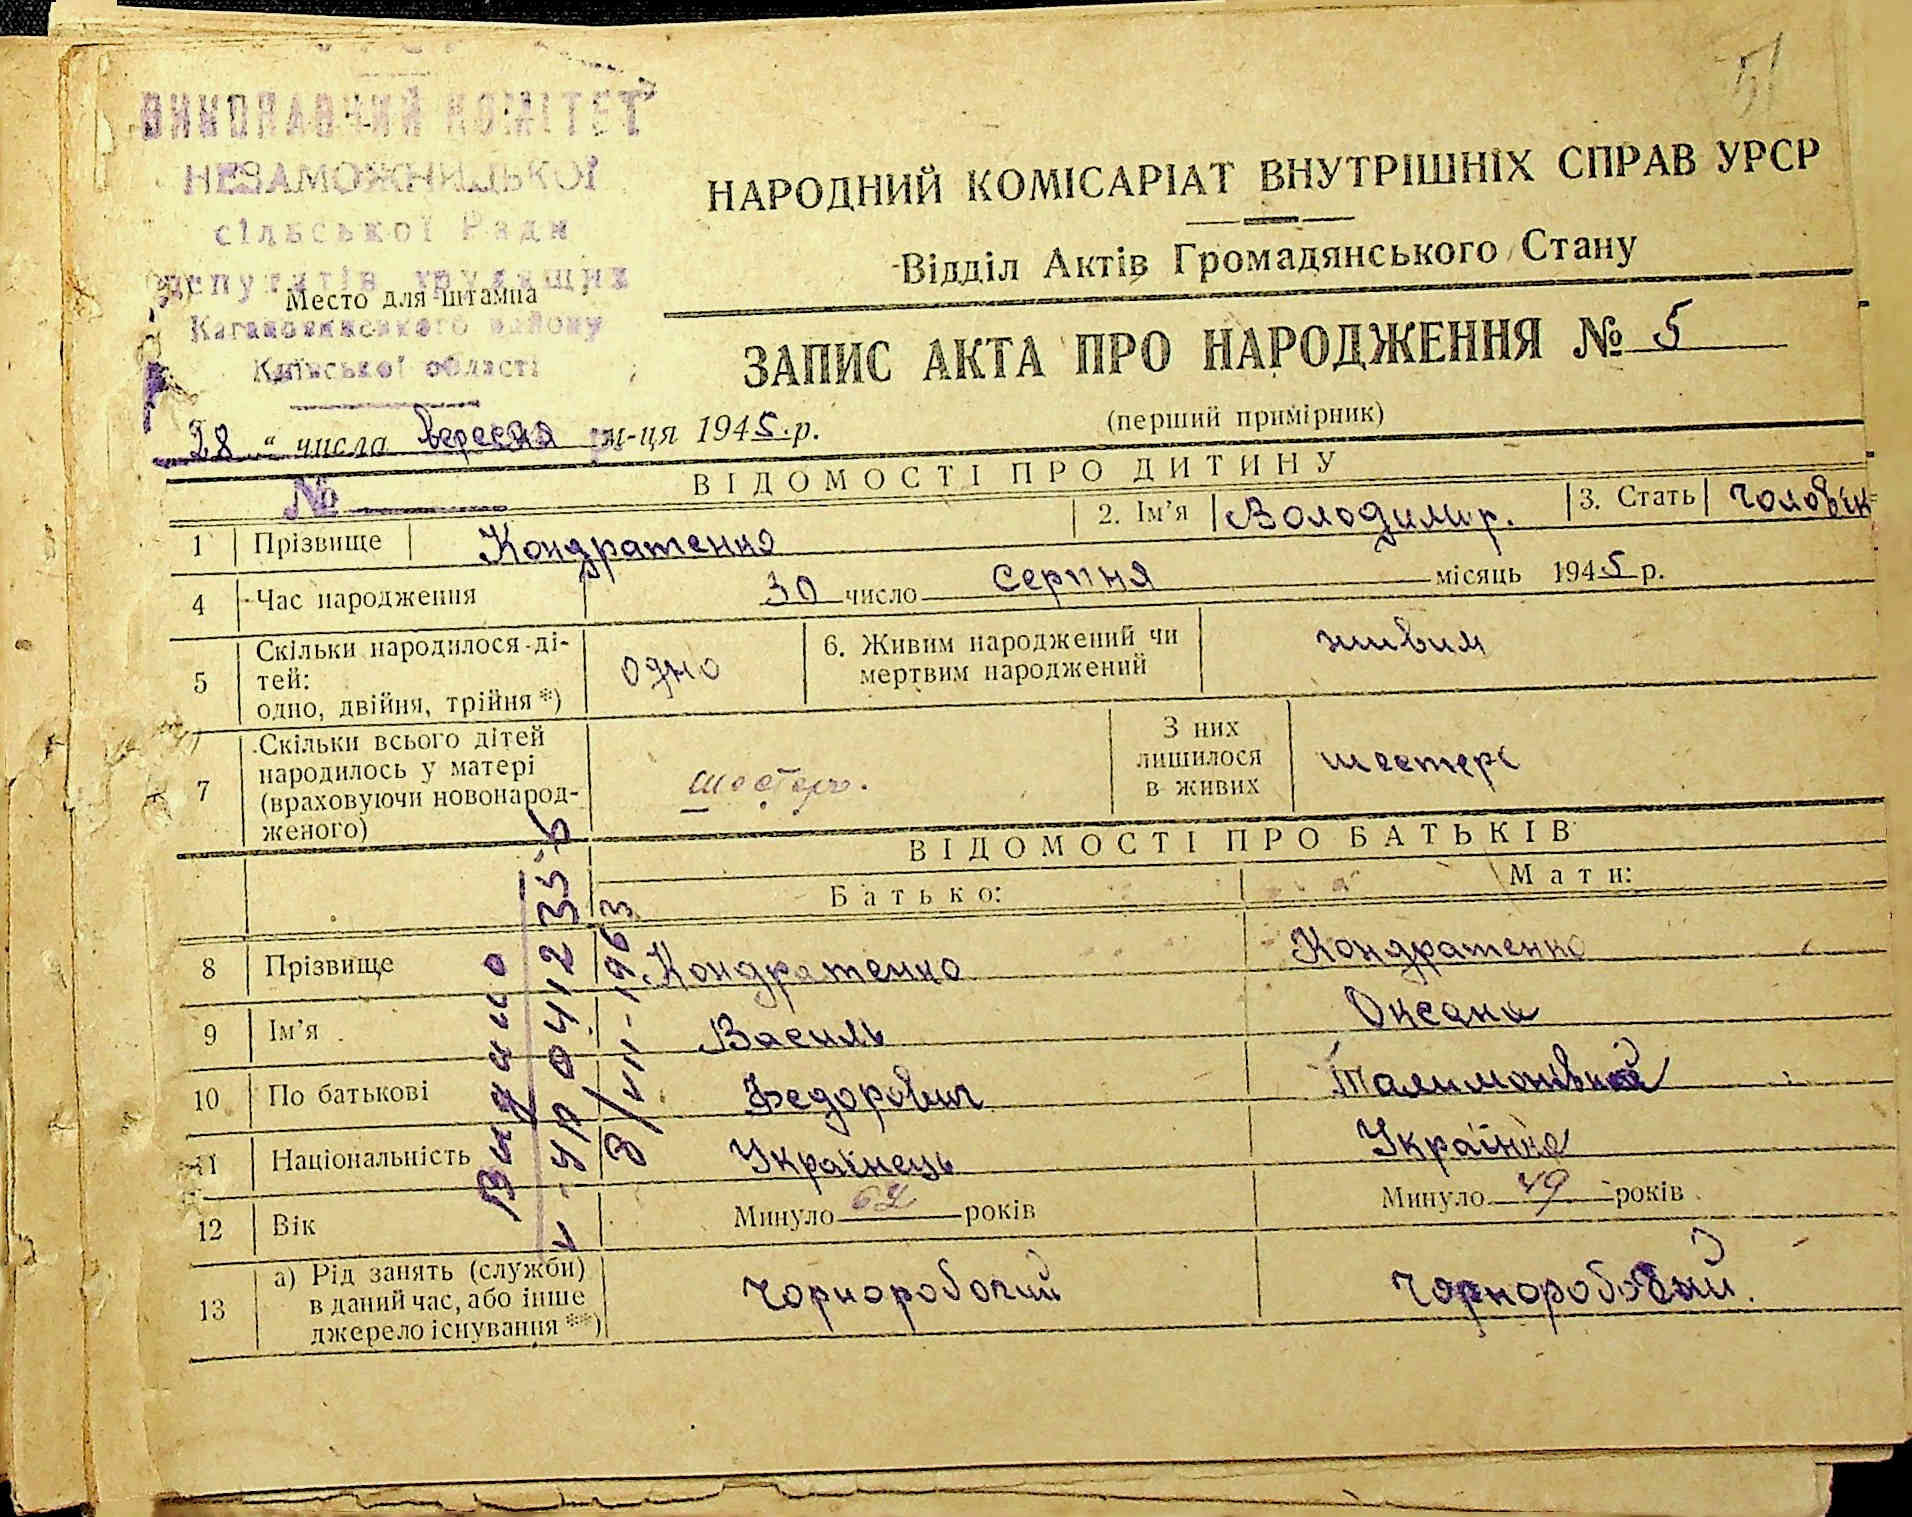 51
ВИКОНАВЧИЙ КОМІТЕТ
НЕЗАМОЖНИЦЬКОЇ
сільської Ради
депутатів трудящих
Место для штампа
Кагановичського району
Київської області
НАРОДНИЙ КОМІСАРІАТ ВНУТРІШНІХ СПРАВ УРСР
Відділ Актів Громадянського Стану
ЗАПИС АКТА ПРО НАРОДЖЕННЯ № 5
(перший примірник)
28 " числа вересня м-ця 1945 р.
№
ВІДОМОСТІ ПРО ДИТИНУ
1 Прізвище Кондратенко 2. Ім'я Володимир. 3. Стать чоловік
4 Час народження 30 число серпня місяць 1945 р.
5 Скільки народилося ді-
тей:
одно, двійня, трійня *) одно
6. Живим народжений чи
мертвим народжений живим
7 Скільки всього дітей
народилось у матері
(враховуючи новонарод-
женого) шестеро.
З них
лишилося
в живих шестеро
ВІДОМОСТІ ПРО БАТЬКІВ
Батько: Мати:
8 Прізвище Кондратенко Кондратенко
9 Ім'я Василь Оксана
10 По батькові Федорович
11 Національність Українець Українка
12 Вік Минуло років Минуло 49 років
13 а) Рід занять (служби)
в даний час, або інше
джерело існування **) Чорноробочий Чорноробочий.
Видано
3/VII-1963